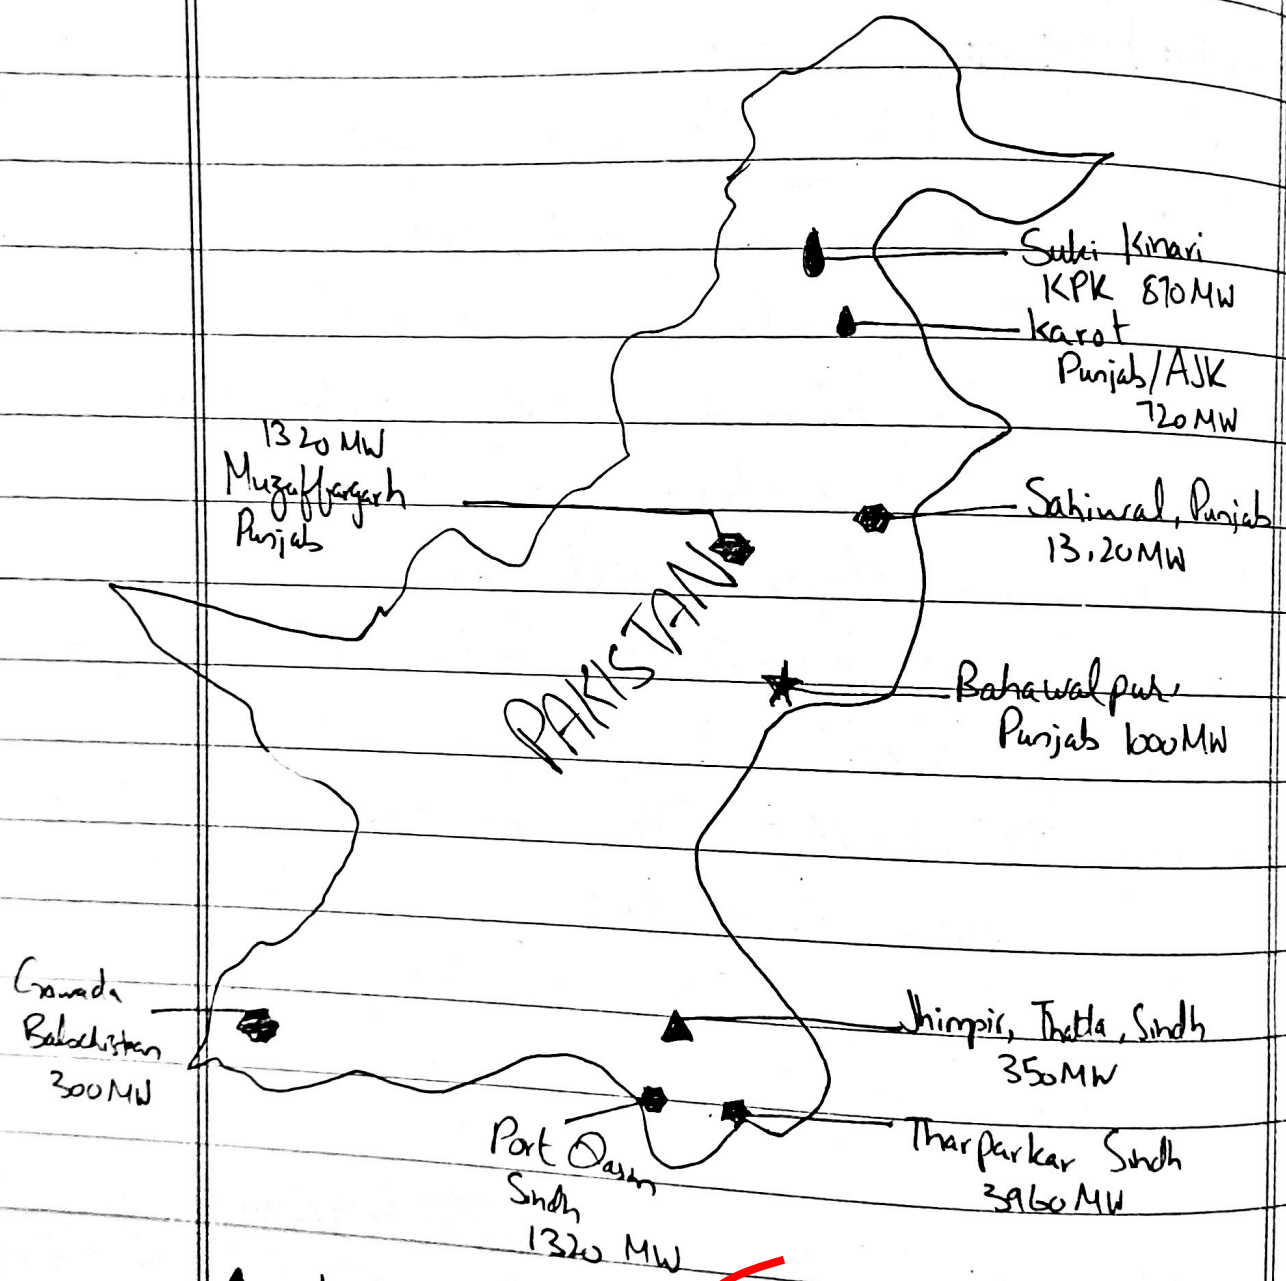 Suki Kinari
KPK 870MW
Karot
Punjab/AJK
720MW
1320 MW
Muzaffargarh
Punjab
Sahiwal, Punjab
13,20MW
PAKISTAN
Bahawalpur
Punjab 1000MW
Gowada
Balochistan
300MW
Jhimpir, Thatta, Sindh
350MW
Port Qasim
Sindh
1320 MW
Tharparkar Sindh
3960MW